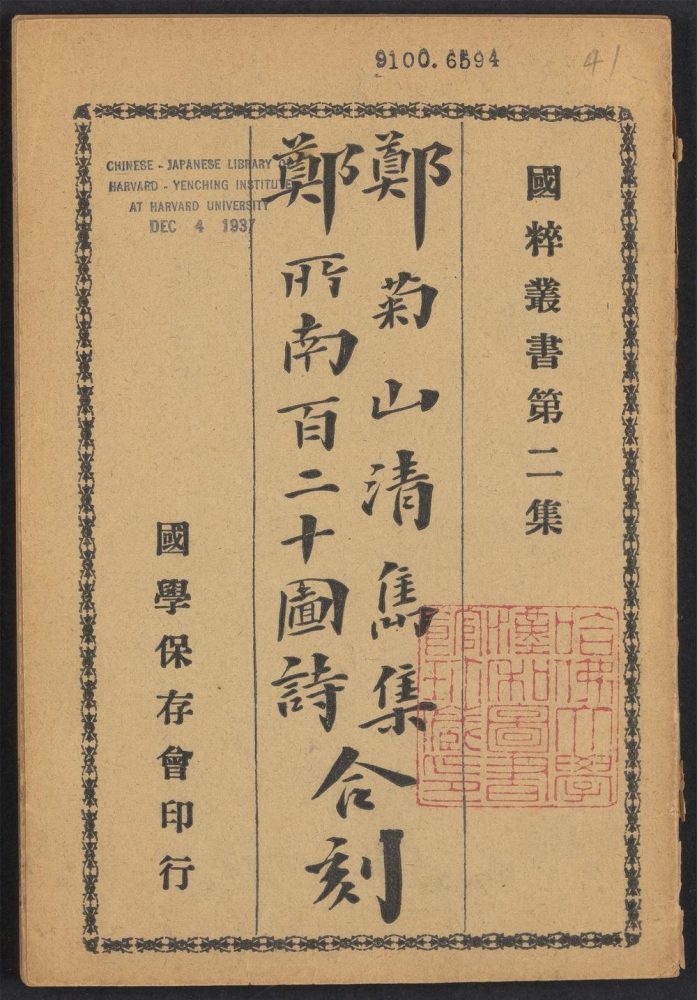 9100.6594
41
CHINESE - JAPANESE LIBRARY OF
HARVARD - YENCHING INSTITUTE
AT HARVARD UNIVERSITY
DEC 4 1937
國粹叢書第二集
鄭菊山清雋集
鄭所南百二十圖詩
合刻
國學保存會印行
哈佛大學
漢和圖書
館珍藏印